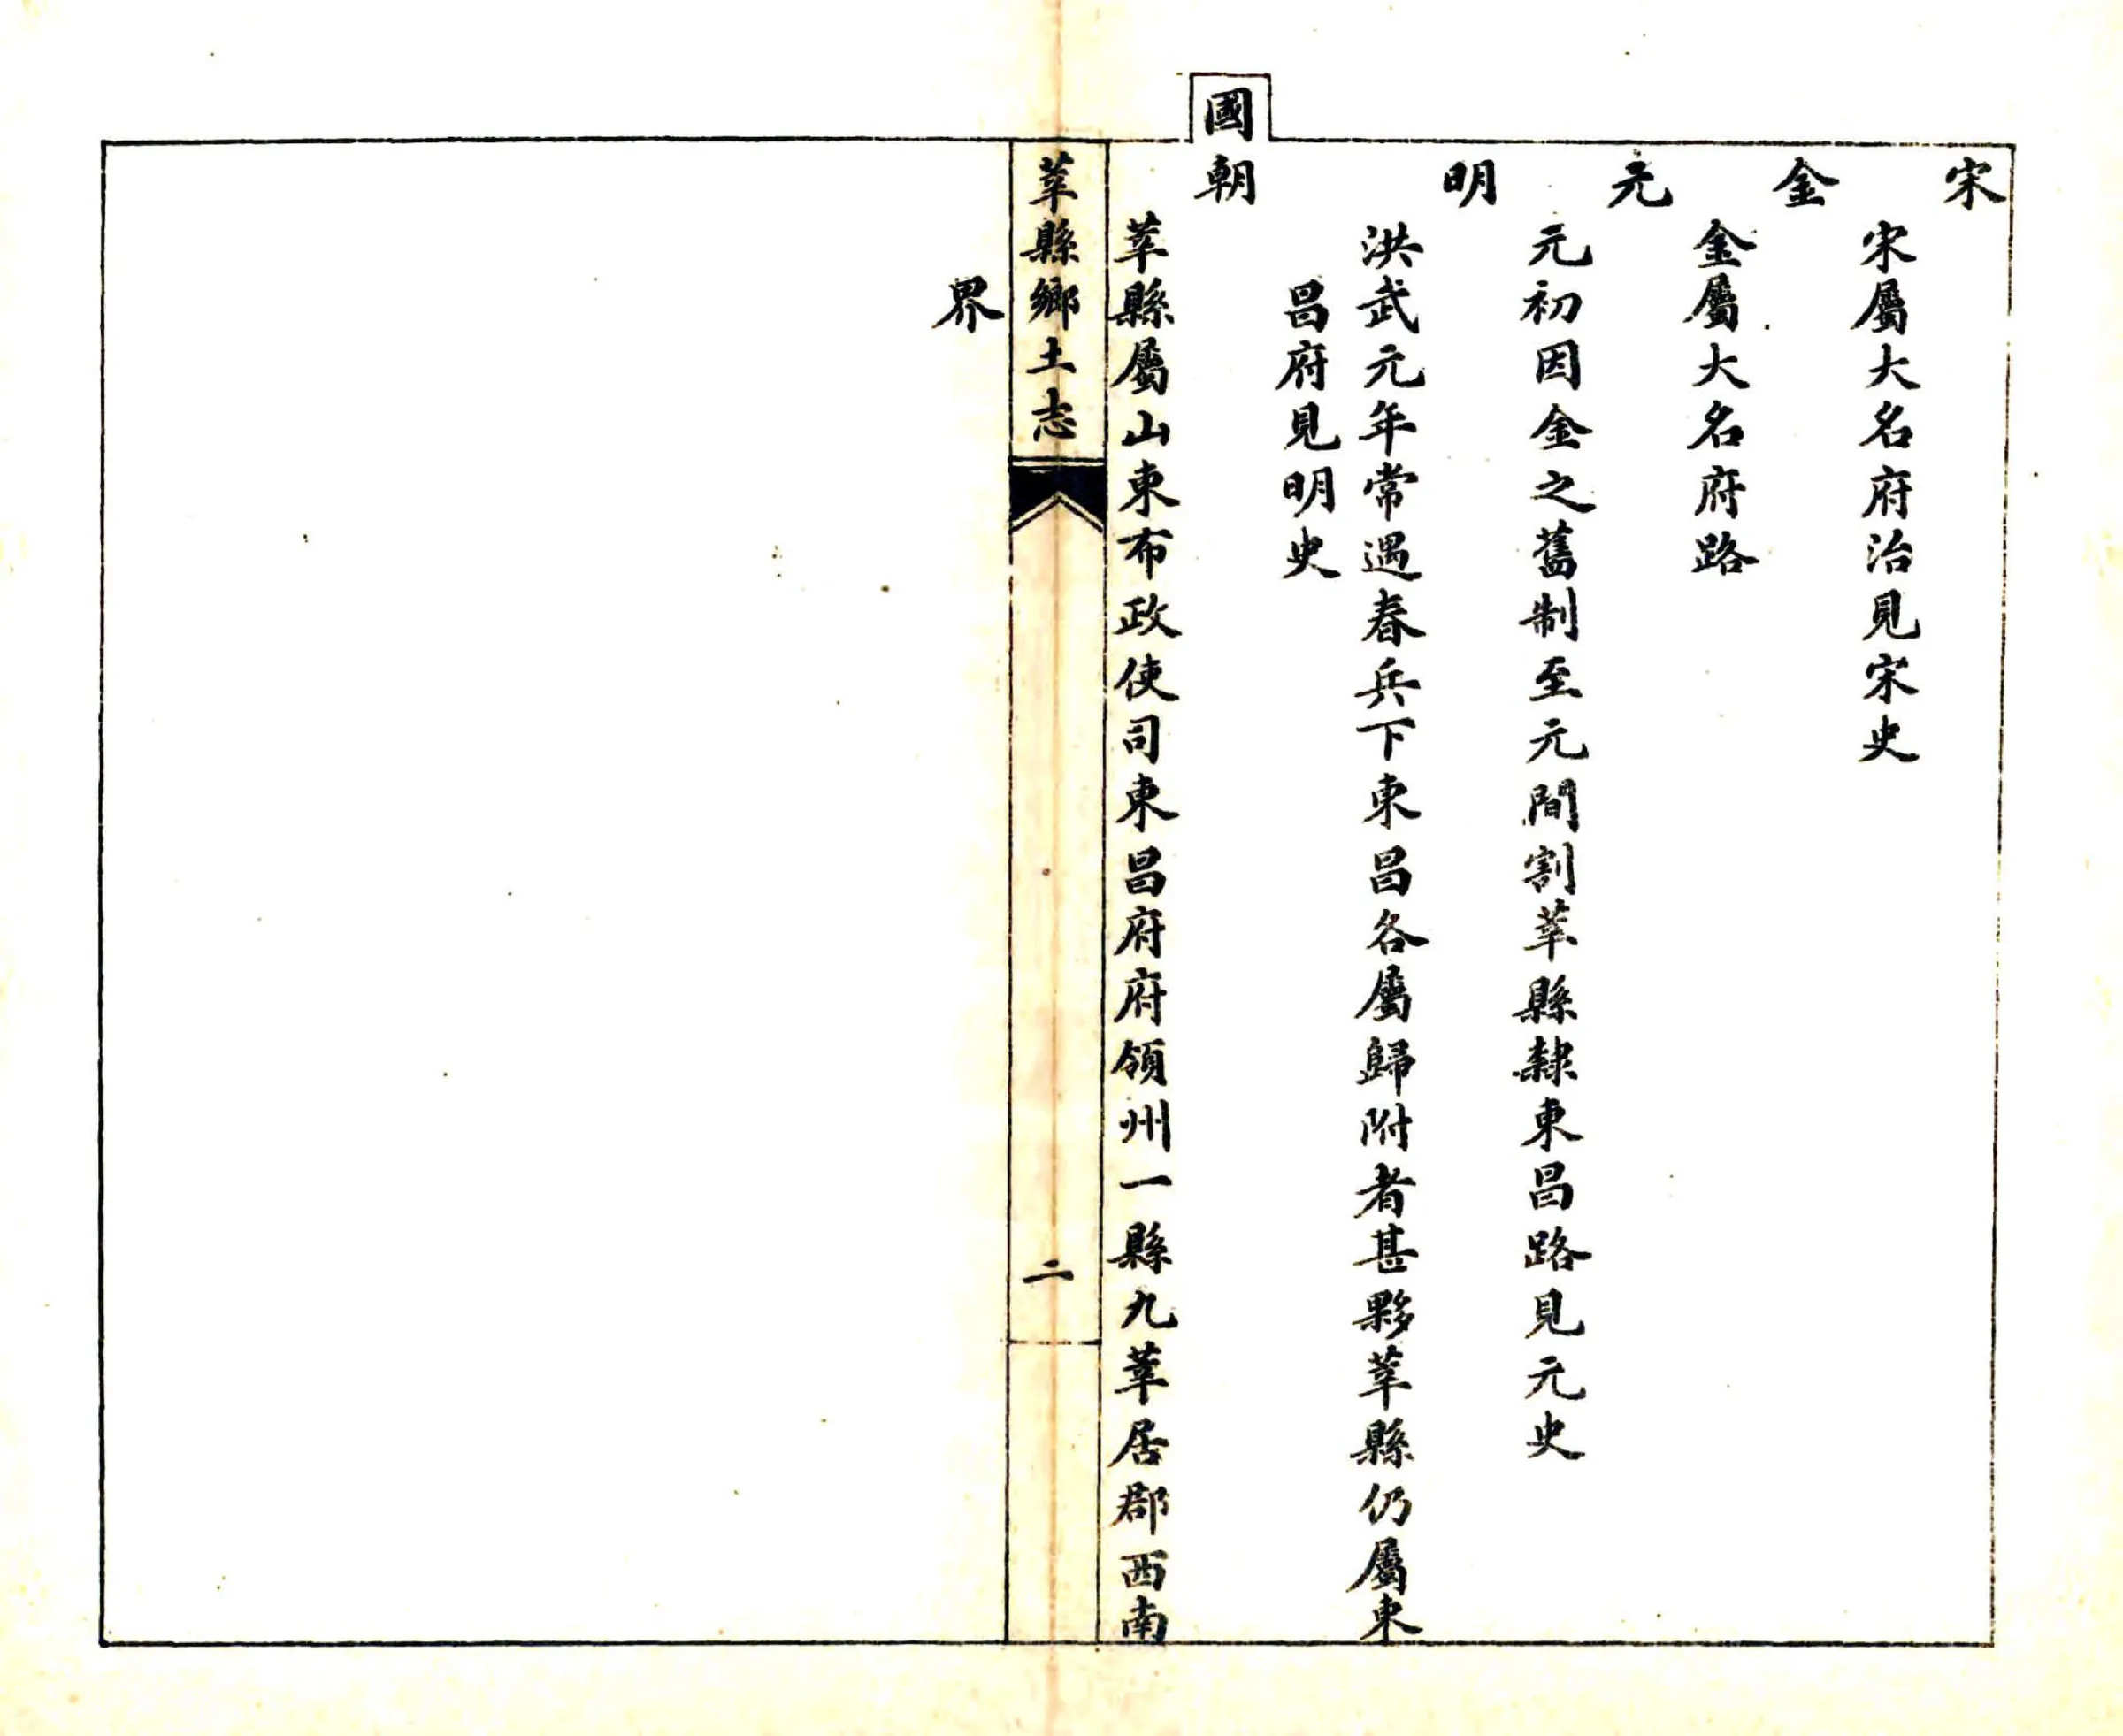 宋
宋屬大名府治見宋史
金
金屬大名府路
元
元初因金之舊制至元間割莘縣隸東昌路見元史
明
洪武元年常遇春兵下東昌各屬歸附者甚夥莘縣仍屬東
昌府見明史
國朝
莘縣屬山東布政使司東昌府府領州一縣九莘居郡西南
莘縣鄉土志
二
界